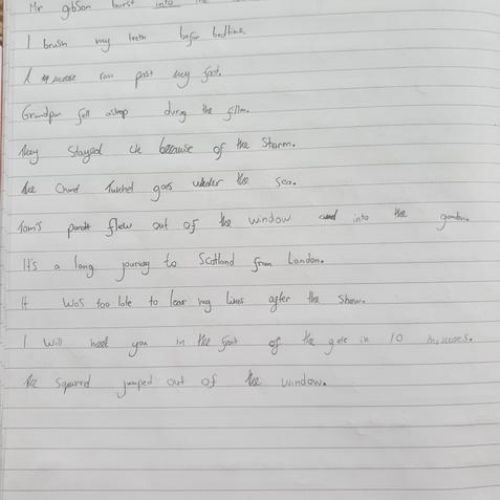 Mr gibson burst into the
I brush my teeth befor bedtime.
A mouse ran past my foot.
Grandpa fell asleep during the film.
They stayed because of the storm.
The Tunnel goes under the sea.
Tom's parrott flew out of the window and into the garden.
It's a long journey to Scotland from London.
It was too late to after the show.
I will meet you in the front of the gate in 10 minuets.
The squirrel jumped out of the window.